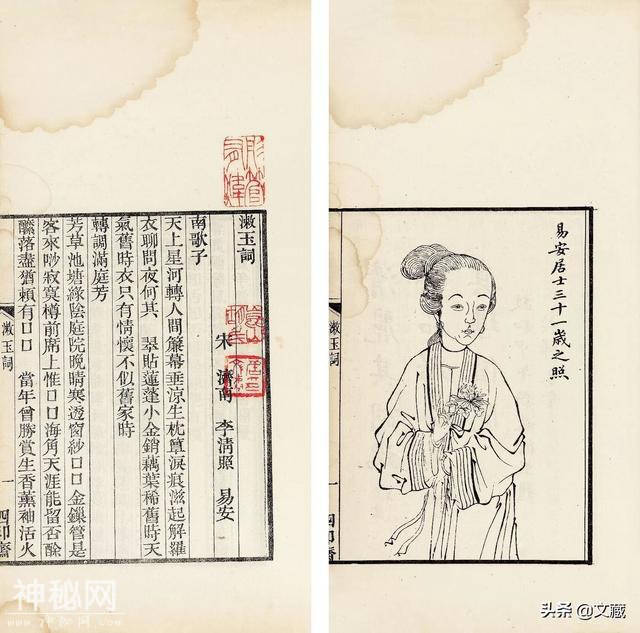 彤管有煒
漱玉詞
宋 濟南 李淸照 易安
南歌子
天上星河轉人間簾幕垂涼生枕簟淚痕滋起解羅
衣聊問夜何其 翠貼蓮蓬小金銷藕葉稀舊時天
氣舊時衣只有情懷不似舊家時
轉調滿庭芳
芳草池塘綠陰庭院晚晴寒透窗紗□□金鏁管是
客來唦寂寞樽前席上惟□□海角天涯能留否酴
醾落盡猶賴有□□ 當年曾勝賞生香薰袖活火
漱玉詞 一 四印齋
易安居士三十一歲之照
漱玉詞 一 四印齋
神秘网
头条 @文藏